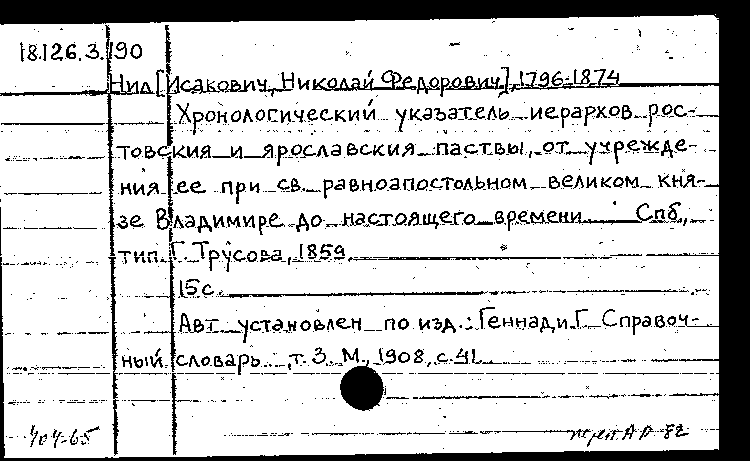 18.126.3.190
Нил [Исакович, Николай Федорович], 1796-1874
Хронологический указатель иерархов рос-
товския и ярославския паствы, от учрежде-
ния ее при св. равноапостольном великом кня-
зе Владимире до настоящего времени. Спб.,
тип. Г. Трусова, 1859.
15 с.
Авт. установлен по изд.: Геннади Г. Справоч-
ный словарь. т. 3. М., 1908, с. 41.
404-65
АР 82